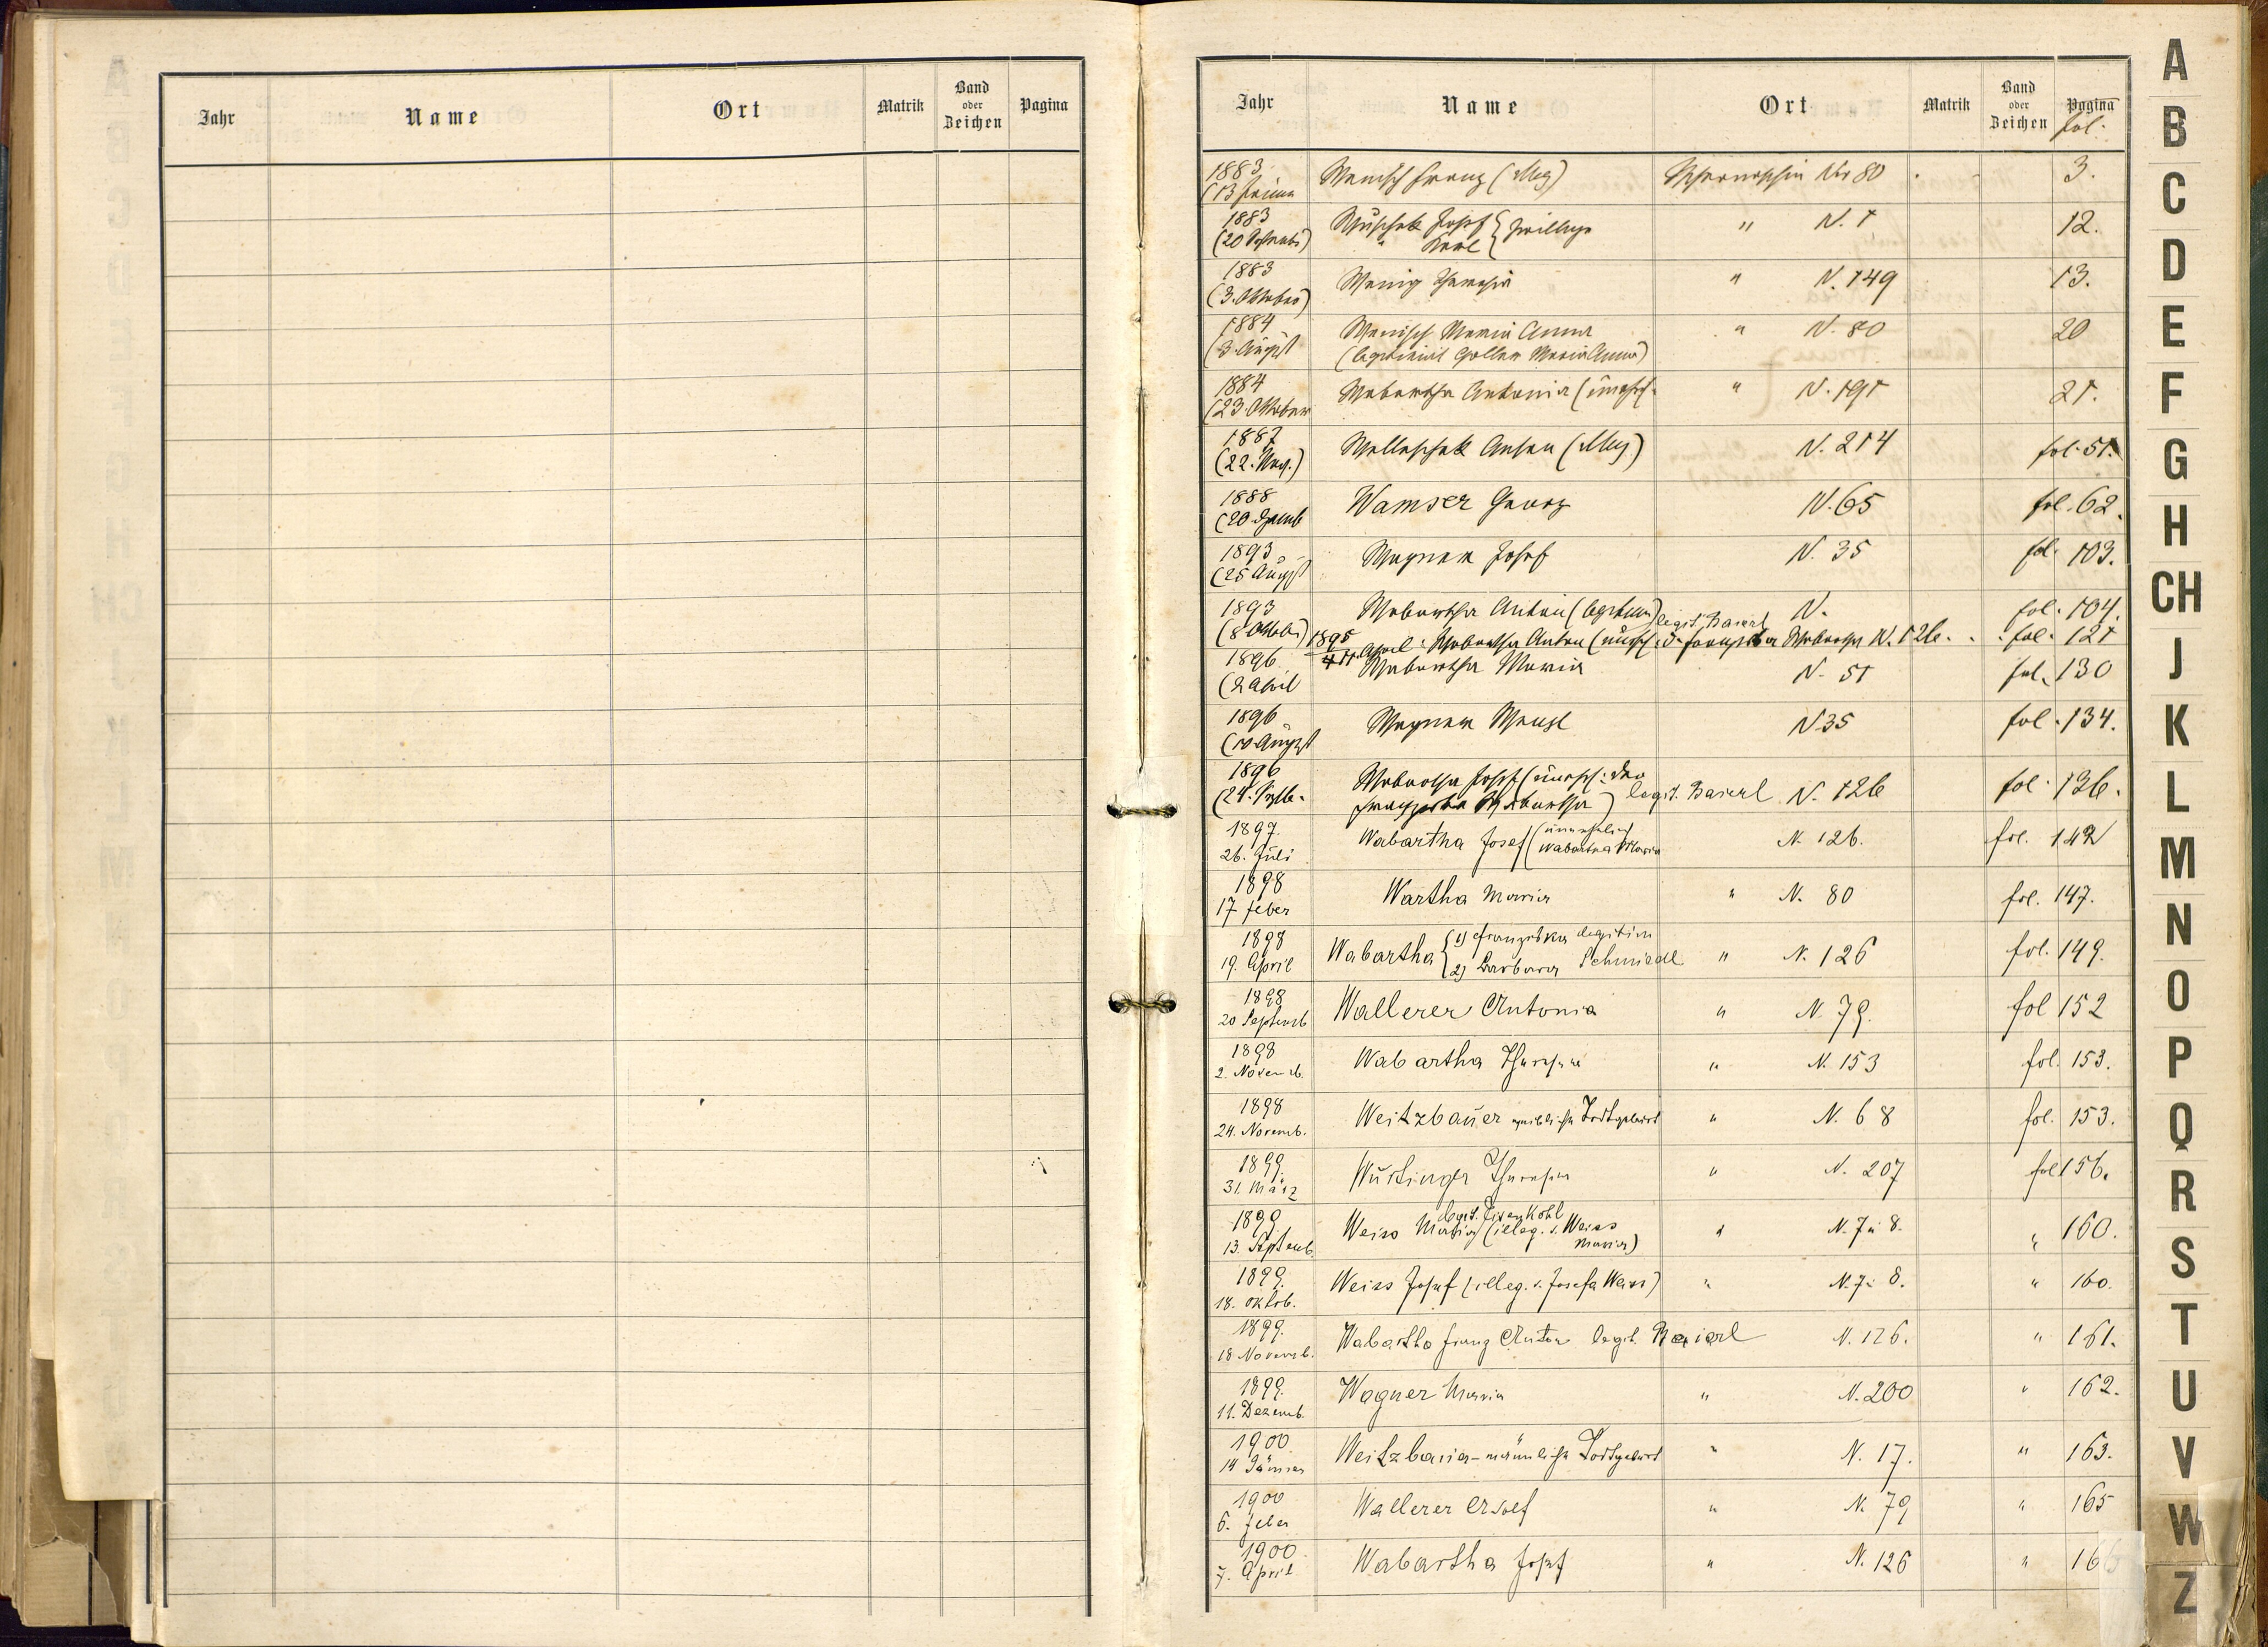 Jahr Name Ort Matrik Band oder Zeichen Pagina
Jahr Name Ort Matrik Band oder Zeichen Pagina fol.
1883 Wenisch Franz (Aug) Nr 80 3.
(13 Jänner
1883 Wuschek Josef } Zwillinge " N. 1 12.
(20 " Karl
1883 Wenig Theresia " N. 149 13.
(3. Oktober)
1884 Wenisch Maria Anna " N. 80 20
(3. August (legitimirt Maria Anna)
1884 Wabartha Antonia (unehl. " N. 191 21.
(23. Oktober
1887 Wolleschek Anton N. 214 fol. 51.
(22.
1888 Wamser Georg N. 65 fol. 62.
(20.
1893 Wagner Josef N. 35 fol. 103.
(25 August
1893 Wabartha Anton (legitim) legit. Baierl N. fol. 104.
(8 Oktober) 1895
11. April Wabartha Anton (unehl. d. Franziska Wabartha N. 126. fol. 121
1896 Wabartha Maria N. 51 fol. 130
(2 April
1896 Wagner Wenzl N 35 fol. 134.
(10 August
1896 Wabartha Josef (unehl. der
(24. Septb. Franziska Wabartha) legit. Baierl N. 126 fol. 136.
1897. Wabartha Josef (unehelich N. 126. fol. 142
26. Juli Wabartha Maria
1898 Wartha Maria " N. 80 fol. 147.
17 Feber
1898 Wabartha { 1) Franziska legitim
19. April 2) Barbara Schmiedl " N. 126 fol. 149.
1898 Wallerer Antonia " N. 79. fol 152
20 Septemb
1898 Wabartha Theresia " N. 153 fol. 153.
2. Novemb.
1898 Weitzbauer weibliche Todtgeburt " N. 68 fol. 153.
24. Novemb.
1899. Wurtinger Theresia " N. 207 fol 156.
31. März
1899. legit. Eisenkohl
Weiss Maria (illeg. v. Weiss " N. 7 u 8. " 160.
13. Septemb. Maria)
1899. Weiss Josef (illeg. v. Josefa Weiss) " N. 7 u 8. " 160.
18. Oktob.
1899. Wabartha Franz Anton legit. Baierl N. 126. " 161.
18 Novemb.
1899. Wagner Maria " N. 200 " 162.
11. Dezemb.
1900. Weitzbauer - männliche Todtgeburt " N. 17. " 163.
14 Jänner
1900 Wallerer Adolf " N. 79 " 165
6. Feber
1900. Wabartha Josef " N. 126 " 16
7. April
A
B
C
D
E
F
G
H
CH
J
K
L
M
N
O
P
Q
R
S
T
U
V
W
Z